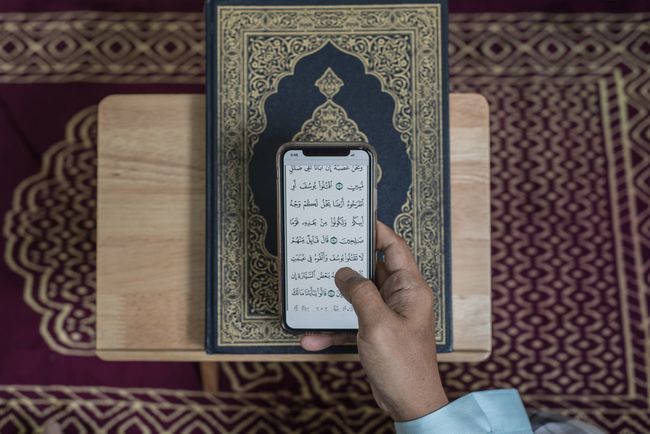 وَنَحْنُ عُصْبَةٌ إِنَّ أَبَانَا لَفِى ضَلَٰلٍ
مُّبِينٍ ٨ ٱقْتُلُوا۟ يُوسُفَ أَوِ
ٱطْرَحُوهُ أَرْضًا يَخْلُ لَكُمْ وَجْهُ
أَبِيكُمْ وَتَكُونُوا۟ مِنۢ بَعْدِهِۦ قَوْمًا
صَٰلِحِينَ ٩ قَالَ قَآئِلٌ مِّنْهُمْ
لَا تَقْتُلُوا۟ يُوسُفَ وَأَلْقُوهُ فِى غَيَٰبَتِ
بَعْضُ ٱلسَّيَّارَةِ إِن
قَالُوا۟ يَٰٓأَبَانَا مَالَكَ